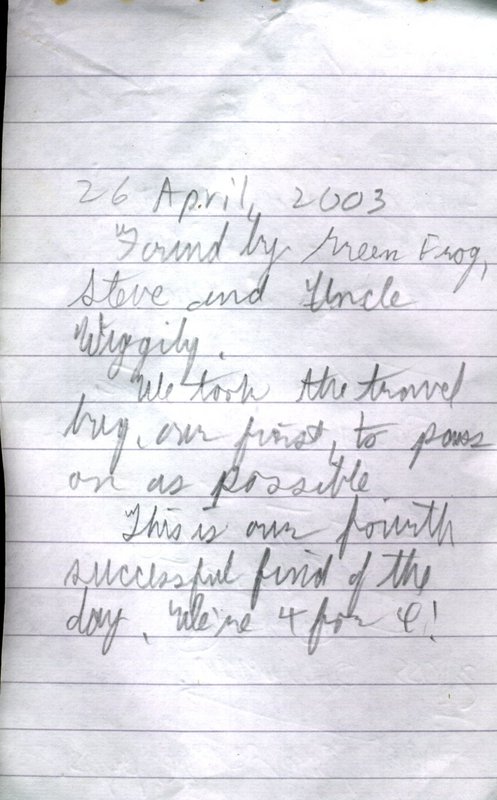 26 April, 2003
Found by Green Frog,
Steve and Uncle
Wiggily.
We took the travel
bug, our first, to pass
on as possible
This is our fourth
successful find of the
day. We're 4 for 4!